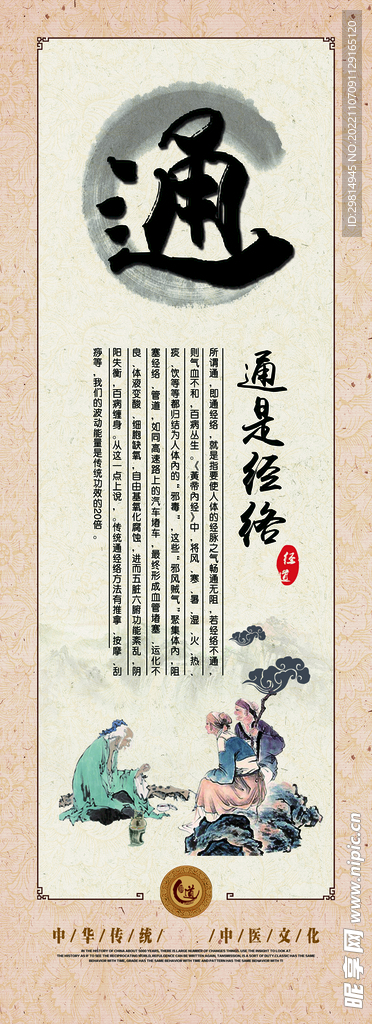 通
通是经络
经道
所谓通,即通经络,就是指要使人体的经脉之气畅通无阻,若经络不通,
则气血不和,百病丛生。《黄帝内经》中,将风、寒、暑、湿、火、热、
痰、饮等等都归结为人体内的“邪毒”,这些“邪风贼气”聚集体内,阻
塞经络、管道,如同高速路上的汽车堵车,最终形成血管堵塞、运化不
良、体液变酸、细胞缺氧,自由基氧化腐蚀,进而五脏六腑功能紊乱,阴
阳失衡,百病缠身。从这一点上说,传统通经络方法有推拿、按摩、刮
痧等,我们的波动能量是传统功效的20倍。
道
中/华/传/统/ /中/医/文/化
IN THE HISTORY OF CHINA ABOUT 5000 YEARS, THERE IS LARGE NUMBER OF CHANGES THINGS. USE THE INSIGHT TO LOOK AT
THE HISTORY AS IF TO SEE THE RECIPROCATING WORLD, REFULGENCE CAN BE WRITTEN AGAIN, TRANSMISSION, IS A SORT OF DUTY. CLASSIC HAS THE SAME
BEHAVIOR WITH TIME, GRAIN HAS THE SAME BEHAVIOR WITH TIME AND PATTERN HAS THE SAME BEHAVIOR WITH TI
ID:29814945 NO:20221107091129165120
昵享网 www.nipic.cn